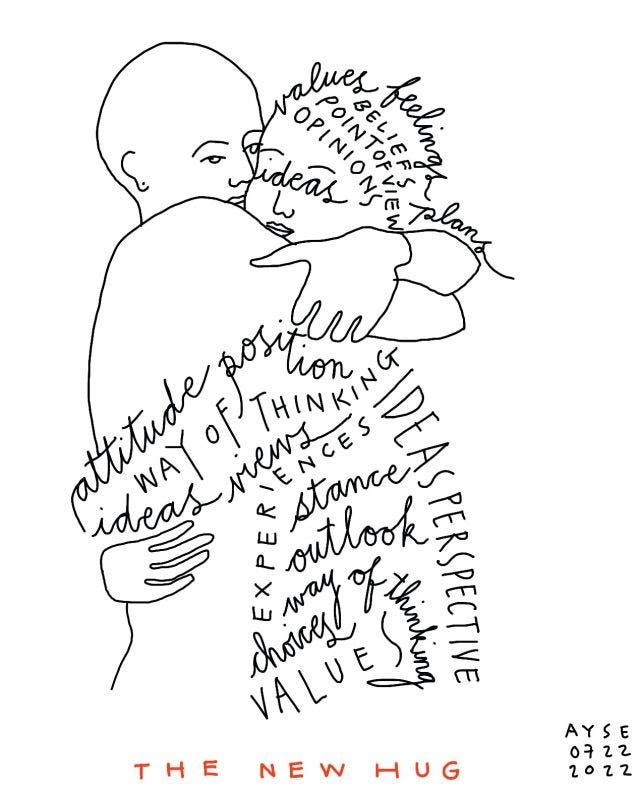 values feelings
BELIEFS
POINT OF VIEW
OPINIONS
ideas
plans
attitude position
WAY OF THINKING
ideas views
EXPERIENCES
IDEAS PERSPECTIVE
stance
outlook
way of thinking
choices
VALUES
THE NEW HUG
AYSE
0722
2022